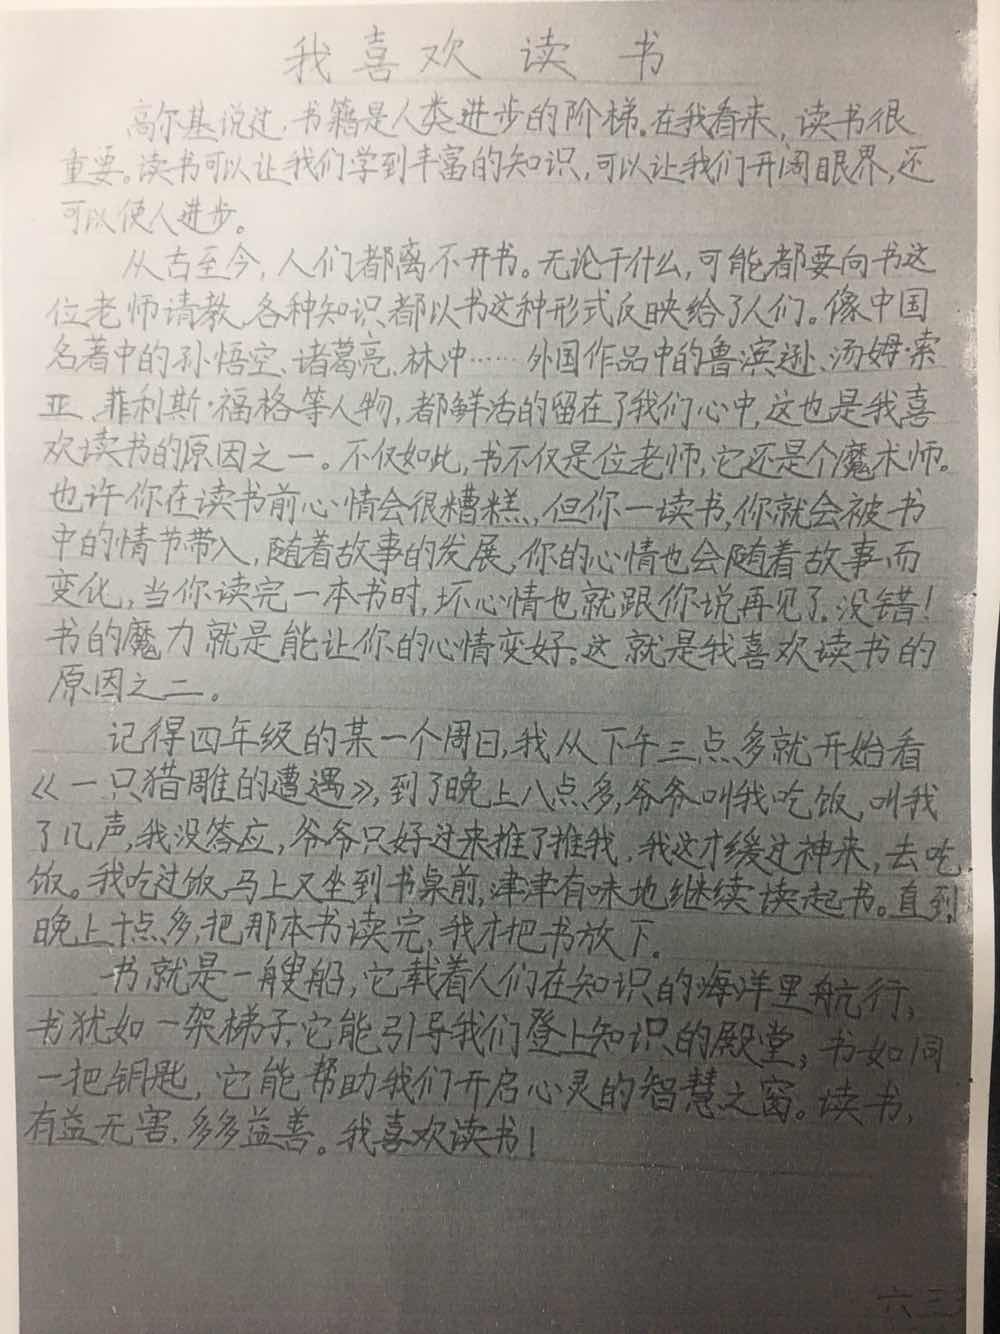 我喜欢读书
高尔基说过,书籍是人类进步的阶梯。在我看来,读书很
重要。读书可以让我们学到丰富的知识,可以让我们开阔眼界,还
可以使人进步。
从古至今,人们都离不开书。无论干什么,可能都要向书这
位老师请教,各种知识都以书这种形式反映给了人们。像中国
名著中的孙悟空、诸葛亮、林冲……外国作品中的鲁滨逊、汤姆·索
亚、菲利斯·福格等人物,都鲜活的留在了我们心中,这也是我喜
欢读书的原因之一。不仅如此,书不仅是位老师,它还是个魔术师。
也许你在读书前心情会很糟糕,但你一读书,你就会被书
中的情节带入,随着故事的发展,你的心情也会随着故事而
变化,当你读完一本书时,坏心情也就跟你说再见了。没错!
书的魔力就是能让你的心情变好。这就是我喜欢读书的
原因之二。
记得四年级的某一个周日,我从下午三点多就开始看
《一只猎雕的遭遇》,到了晚上八点多,爷爷叫我吃饭,叫我
了几声,我没答应,爷爷只好过来推了推我,我这才缓过神来,去吃
饭。我吃过饭,马上又坐到书桌前,津津有味地继续读起书。直到
晚上十点多,把那本书读完,我才把书放下。
书就是一艘船,它载着人们在知识的海洋里航行;
书犹如一架梯子,它能引导我们登上知识的殿堂;书如同
一把钥匙,它能帮助我们开启心灵的智慧之窗。读书,
有益无害,多多益善。我喜欢读书!
六三